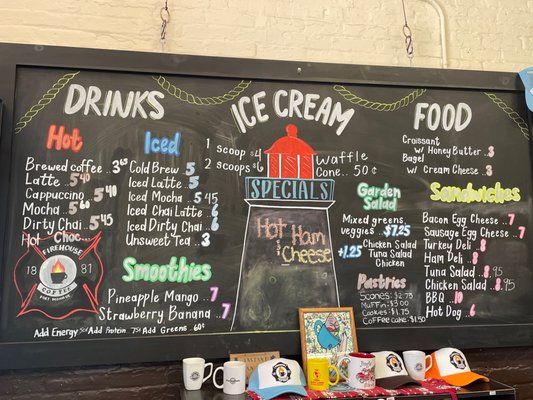 DRINKS
Hot
Brewed coffee .. 3.65
Latte .. 5.40
Cappucino .. 5.40
Mocha .. 5.60
Dirty Chai .. 5.45
Hot Choc...
Iced
Cold Brew .. 5
Iced Latte .. 5
Iced Mocha .. 5.45
Iced Chai Latte .. 6
Iced Dirty Chai .. 6
Unsweet Tea .. 3
Smoothies
Pineapple Mango .. 7
Strawberry Banana .. 7
Add Energy 50¢ Add Protein 75¢ Add Greens .. 60¢
FIREHOUSE
18 81
COFFEE
ICE CREAM
1 scoop $4
2 scoops $6
Waffle
Cone.. 50¢
SPECIALS
Hot Ham
& Cheese
FOOD
Croissant
w/ Honey Butter .. 3
Bagel
w/ Cream Cheese .. 3
Garden
Salad
Mixed greens,
veggies .. $7.25
+1.25 Chicken Salad
Tuna Salad
Chicken
Pastries
Scones: $2.75
Muffin: $3.00
Cookies: $1.75
Coffee cake: $1.50
Sandwiches
Bacon Egg Cheese .. 7
Sausage Egg Cheese .. 7
Turkey Deli .. 8
Ham Deli .. 8
Tuna Salad .. 8.95
Chicken Salad .. 8.95
BBQ .. 10
Hot Dog .. 6